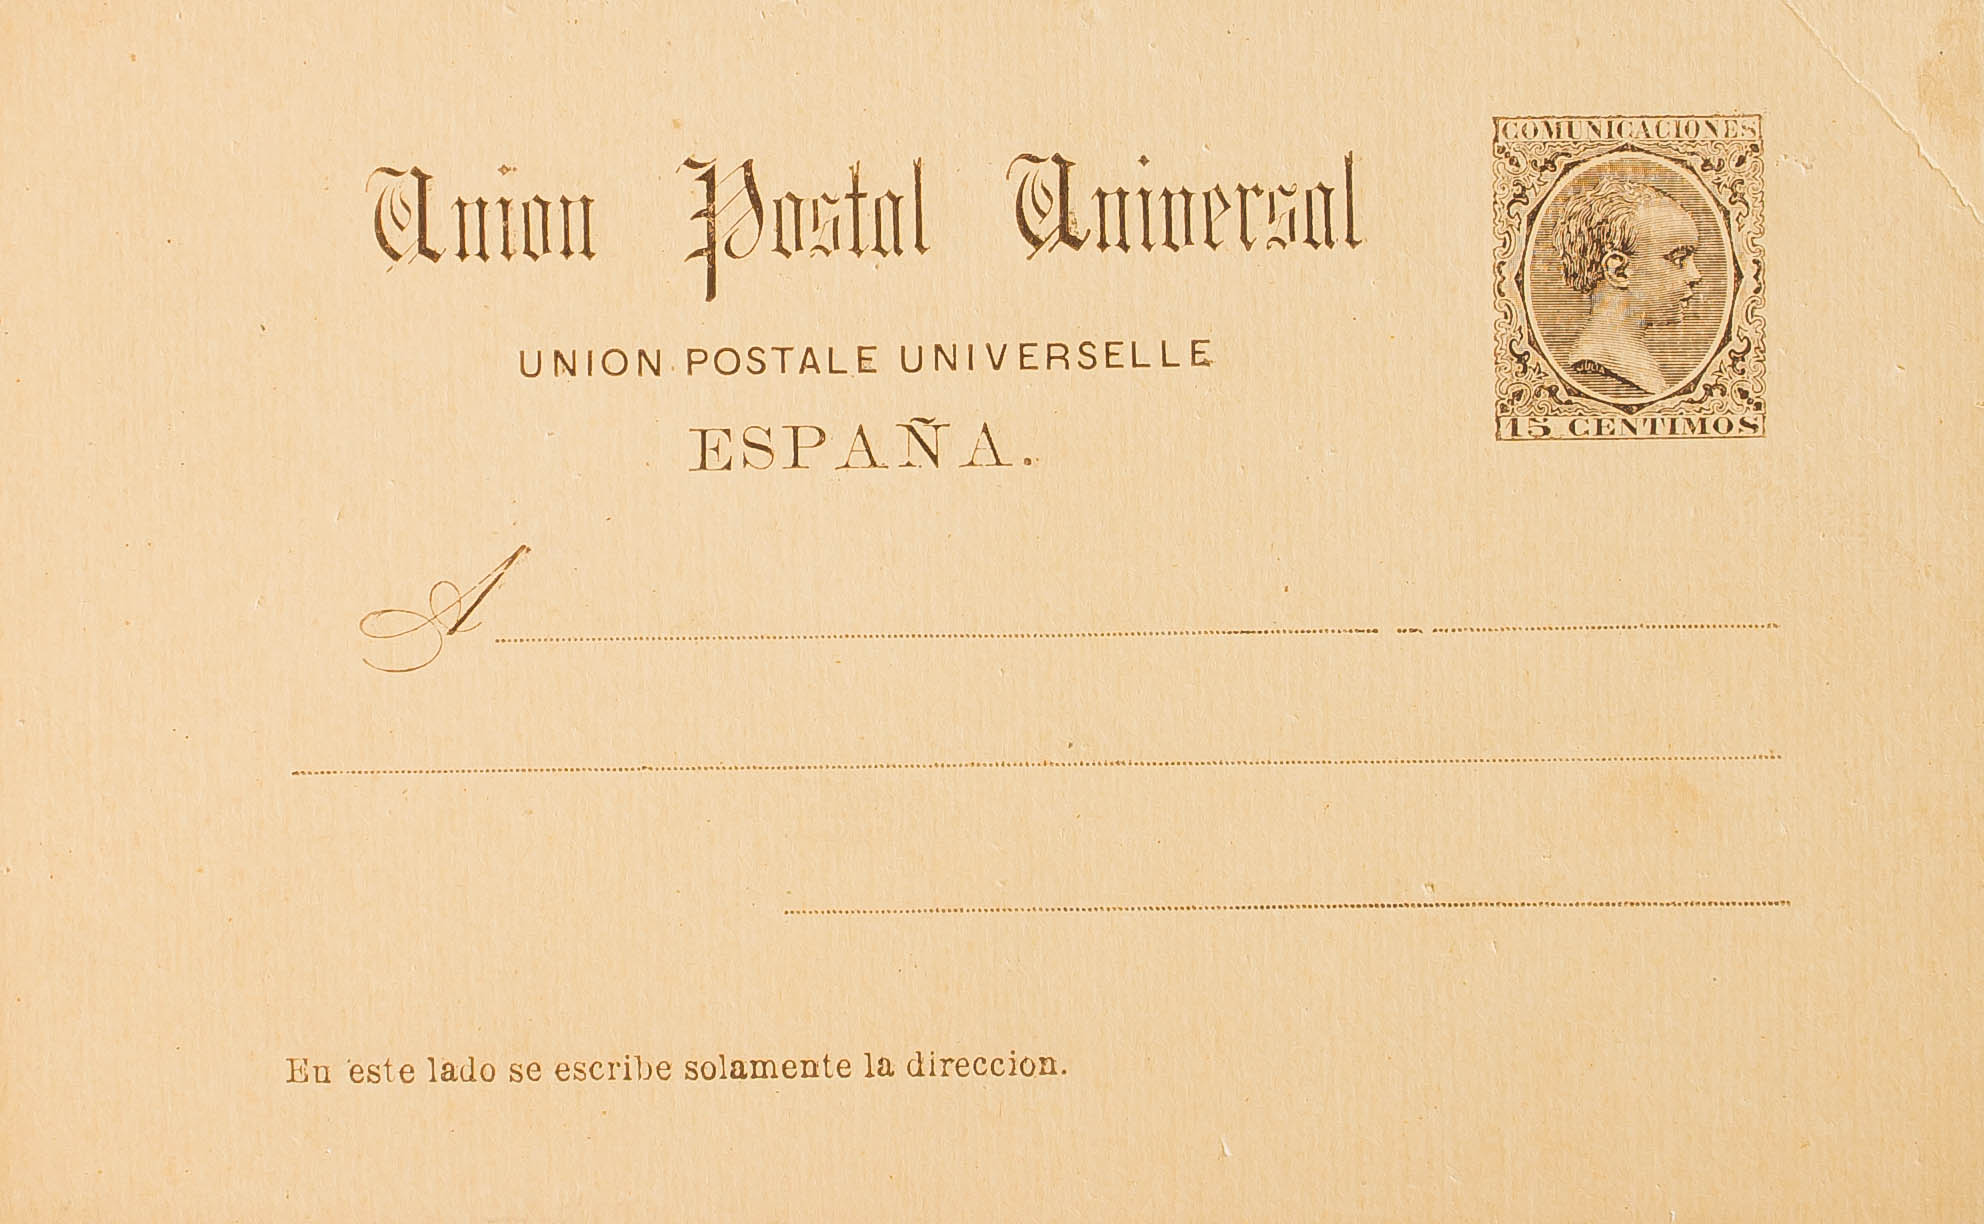 COMUNICACIONES
Union Postal Universal
UNION POSTALE UNIVERSELLE
ESPAÑA.
15 CENTIMOS
A
En este lado se escribe solamente la direccion.